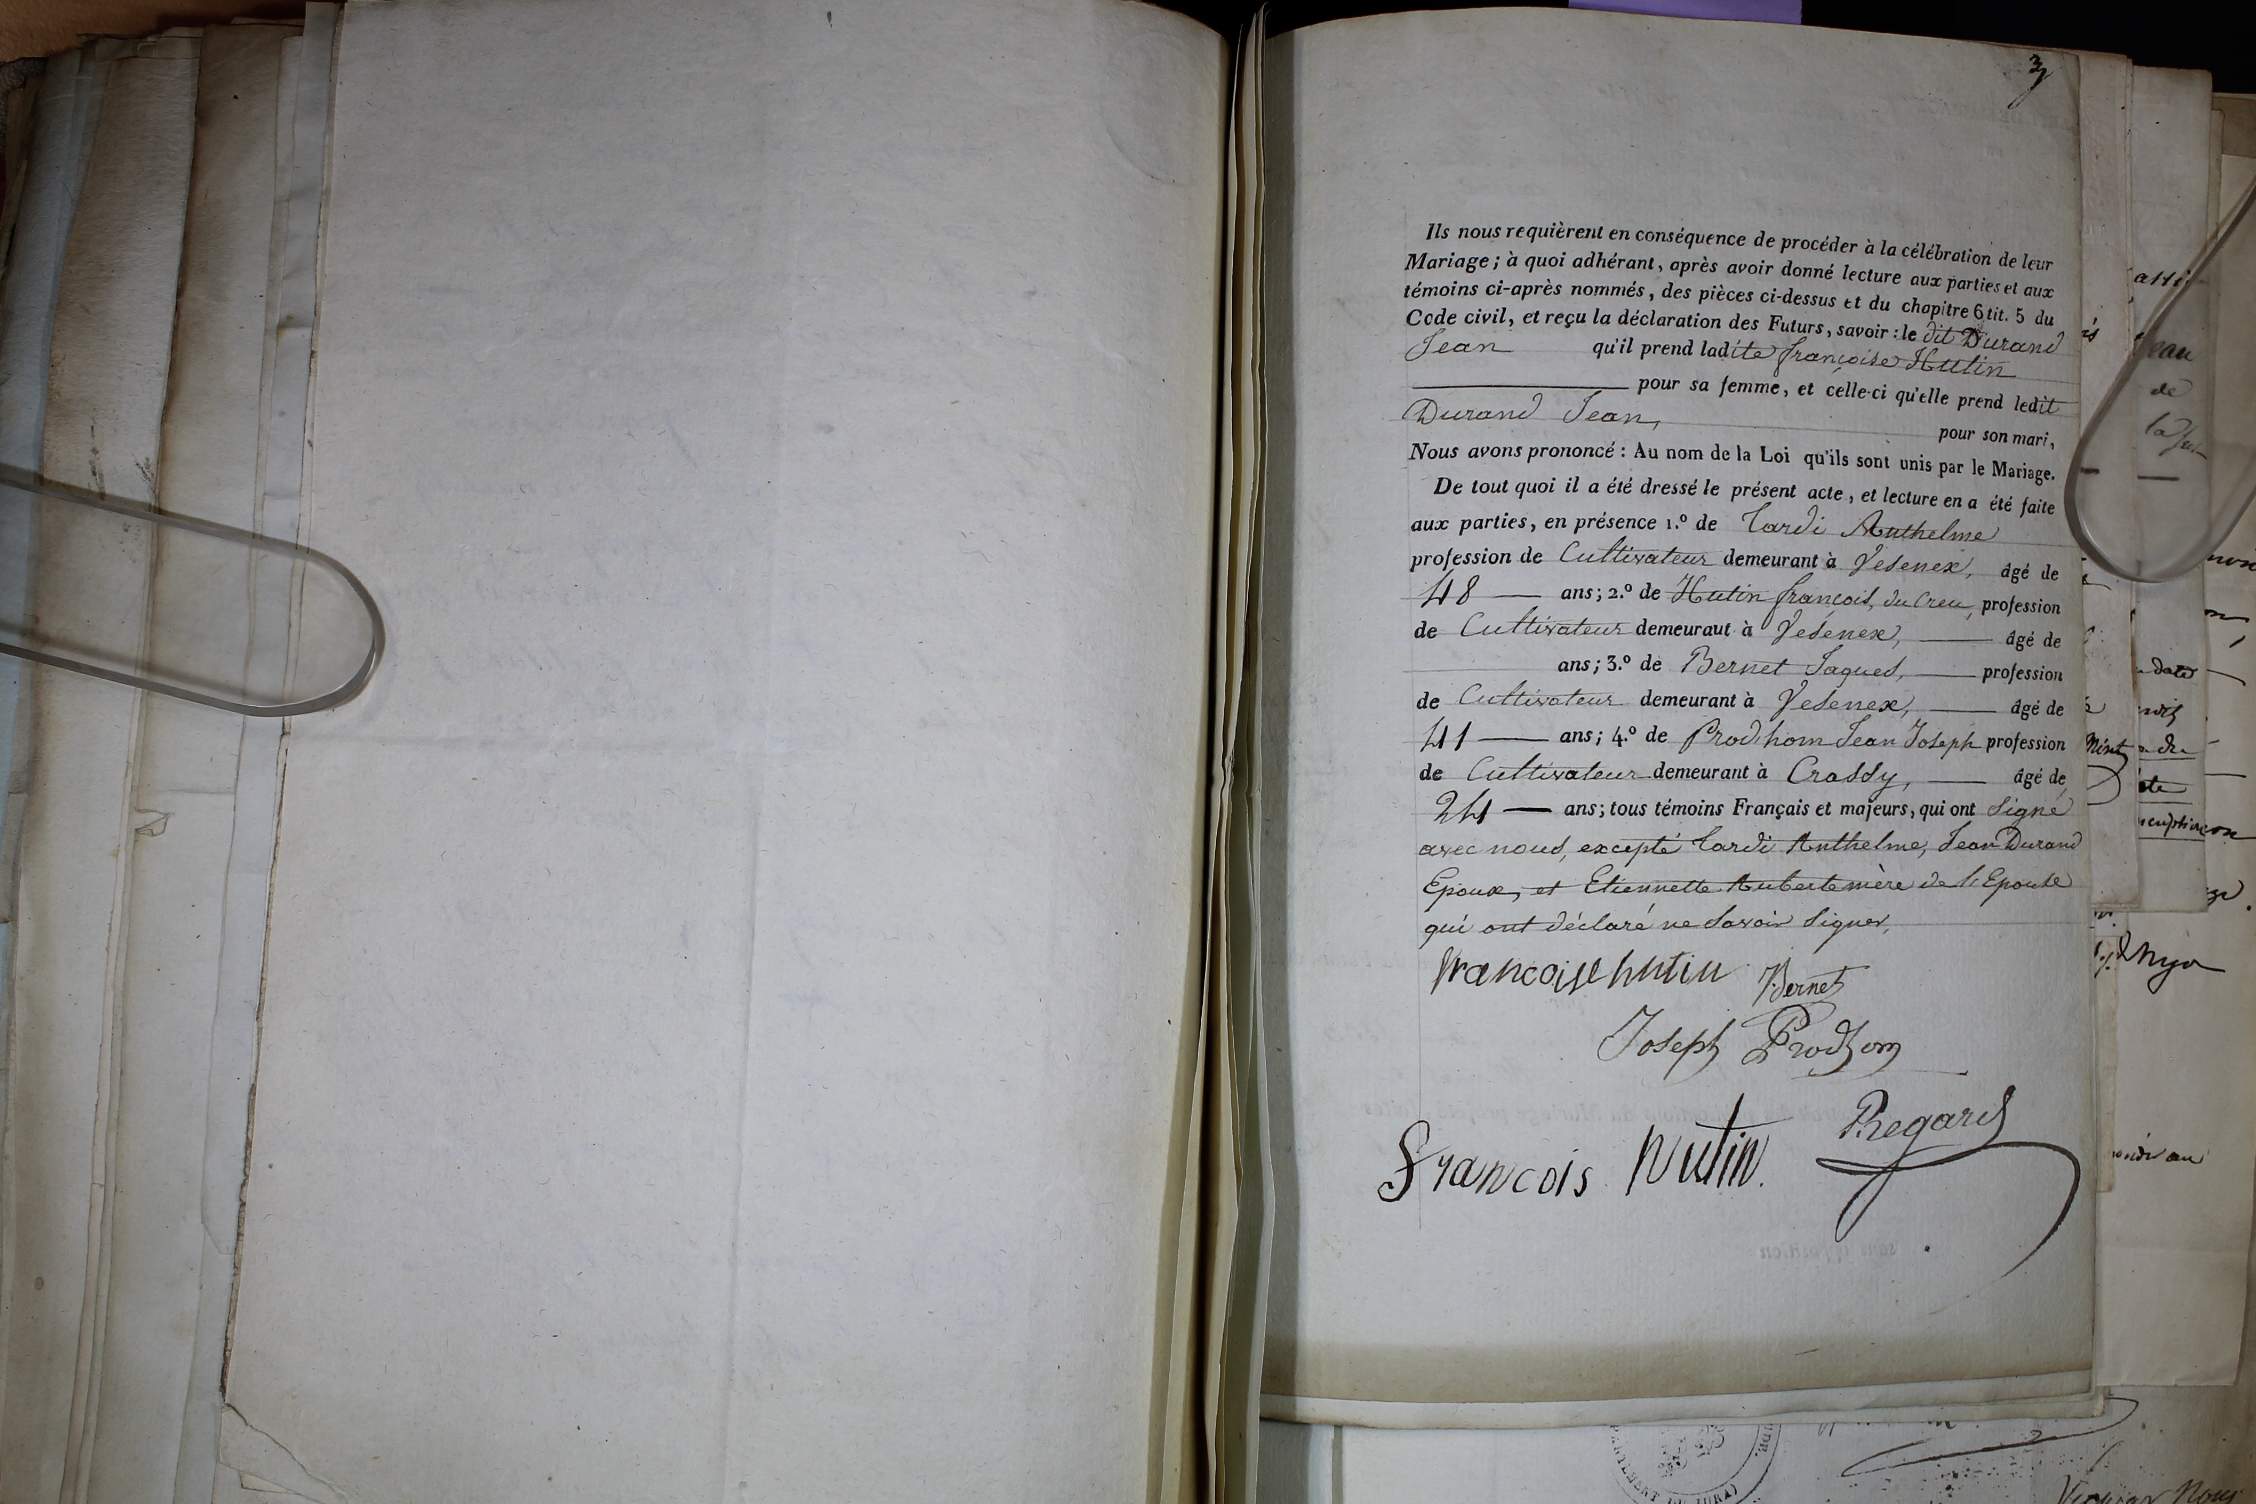 3
Ils nous requièrent en conséquence de procéder à la célébration de leur
Mariage ; à quoi adhérant, après avoir donné lecture aux parties et aux
témoins ci-après nommés, des pièces ci-dessus et du chapitre 6 tit. 5 du
Code civil, et reçu la déclaration des Futurs, savoir : le dit Durand
Jean qu'il prend ladite françoise Hutin
pour sa femme, et celle-ci qu'elle prend ledit
Durand Jean, pour son mari,
Nous avons prononcé : Au nom de la Loi qu'ils sont unis par le Mariage.
De tout quoi il a été dressé le présent acte, et lecture en a été faite
aux parties, en présence 1.º de Tardi Anthelme
profession de Cultivateur demeurant à Vesenex, âgé de
48 — ans ; 2.º de Hutin françois, du Creu, profession
de Cultivateur demeuraut à Vesenex, — âgé de
ans ; 3.º de Bernet Jaques, — profession
de Cultivateur demeurant à Vesenex, — âgé de
41 — ans ; 4.º de Prodhom Jean Joseph profession
de Cultivateur demeurant à Crassy, — âgé de
24 — ans ; tous témoins Français et majeurs, qui ont Signé
avec nous, excepté Tardi Anthelme, Jean Durand
Epoux, et Etiennette Aubert mère de l'Epouse
qui ont déclaré ne Savoir Signer,
francoise hutin Bernet
Joseph Prodhom
Regard
francois hutin.
eau
de
date